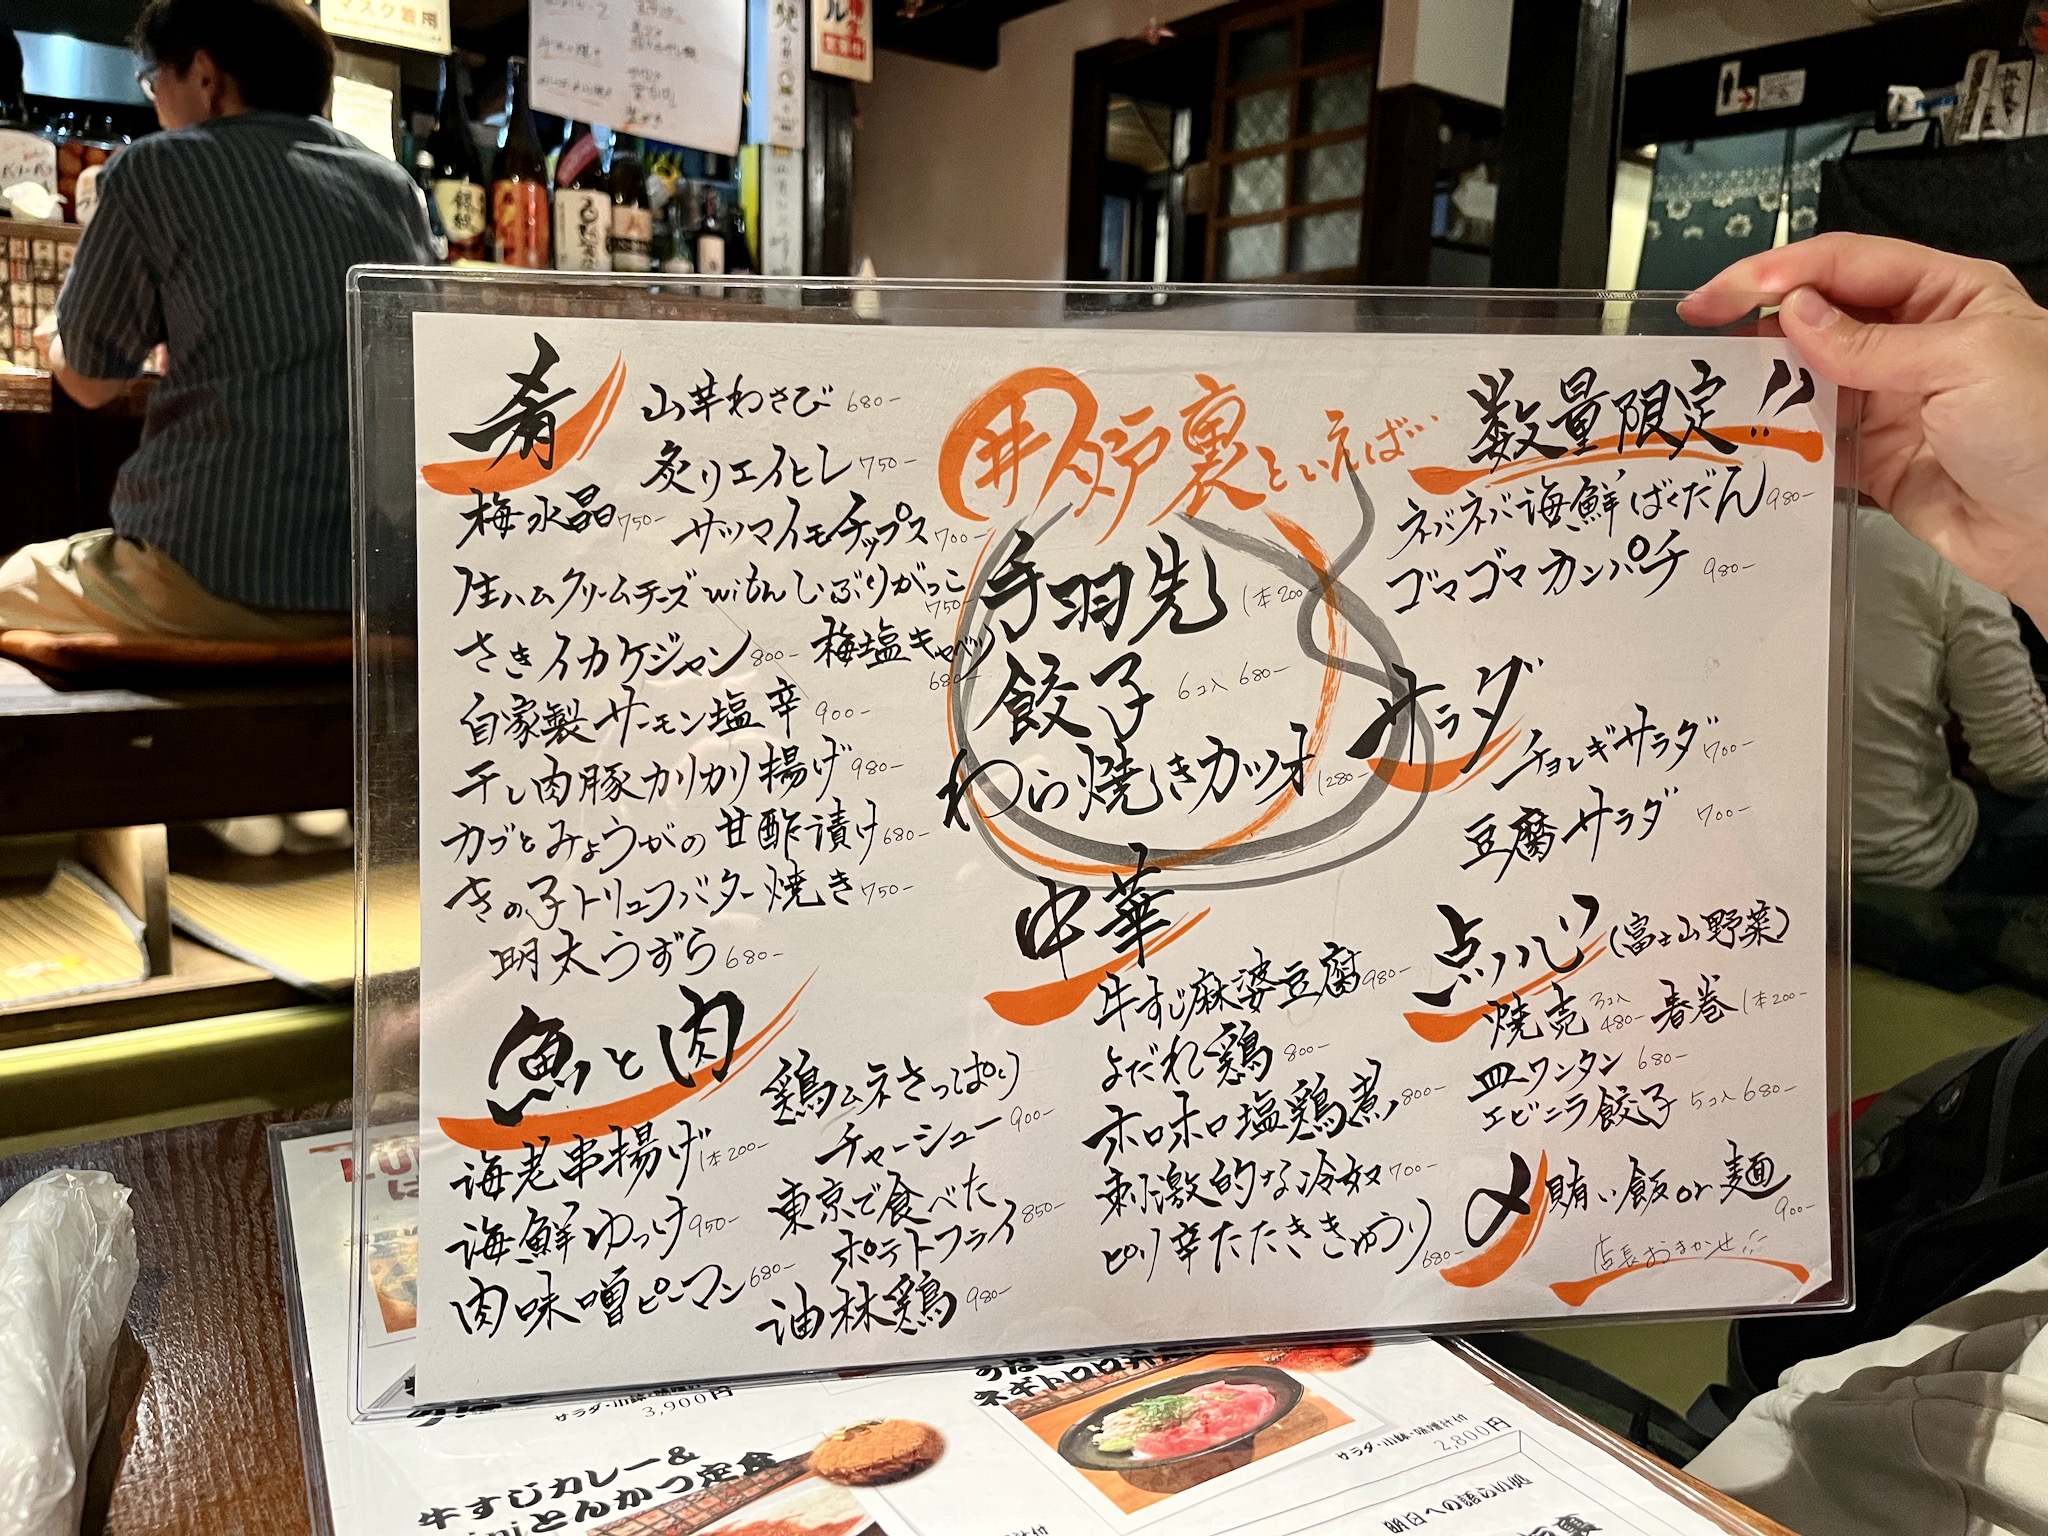 マスク着用
肴
山芋わさび 680-
炙りエイヒレ 750-
梅水晶 750-
サツマイモチップス 700-
生ハムクリームチーズ with いぶりがっこ 750-
さきイカケジャン 800-
梅塩キャベツ 680-
自家製サーモン塩辛 900-
干し肉豚カリカリ揚げ 980-
カブとみょうがの甘酢漬け 680-
きの子トリュフバター焼き 750-
明太うずら 680-
魚と肉
海老串揚げ 1本200-
海鮮ゆっけ 950-
肉味噌ピーマン 680-
鶏ムネさっぱり
チャーシュー 900-
東京で食べた
ポテトフライ 850-
油林鶏 980-
囲炉裏といえば…
手羽先 1本200
餃子 6コ入 680-
わら焼きカツオ 1280-
中華
牛すじ麻婆豆腐 980-
よだれ鶏 800-
ホロホロ塩鶏煮 800-
刺激的な冷奴 700-
ピリ辛たたききゅうり 680-
数量限定!!
ネバネバ海鮮ばくだん 980-
ゴマゴマカンパチ 980-
サラダ
チョレギサラダ 700-
豆腐サラダ 700-
点心 (富士山野菜)
焼売 3コ入 480-
春巻 1本200-
皿ワンタン 680-
エビニラ餃子 5コ入 680-
〆
賄い飯or麺 900-
店長おまかせ
サラダ・小鉢・味噌汁付
3,900円
牛すじカレー&
miniとんかつ定食
ネギトロロ丼
サラダ・小鉢・味噌汁付
2,800円
明日への語らい処